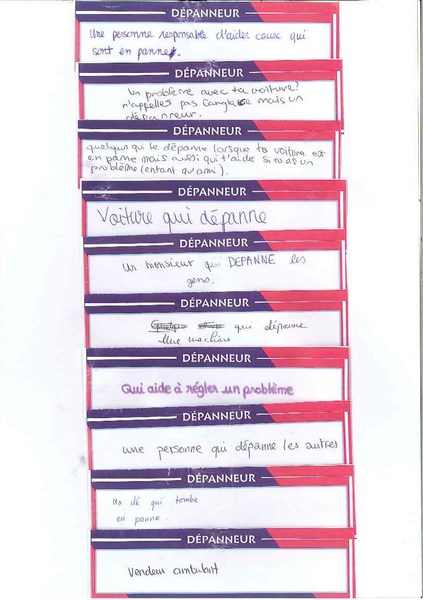 DÉPANNEUR
Une personne responsable d'aider ceux qui
sont en panne.
DÉPANNEUR
Un problème avec ta voiture?
n'appelles pas mais un
dépanneur.
DÉPANNEUR
quelqun qui te dépanne lorsque ta voiture est
en panne mais aussi qui t'aide si tu as un
problème (entant qu'ami).
DÉPANNEUR
Voiture qui dépanne
DÉPANNEUR
Un monsieur qui DEPANNE les
gens.
DÉPANNEUR
qui dépanne
une machine
DÉPANNEUR
Qui aide à régler un problème
DÉPANNEUR
une personne qui dépanne les autres
DÉPANNEUR
Un dé qui tombe
en panne.
DÉPANNEUR
Vendeur ambulant